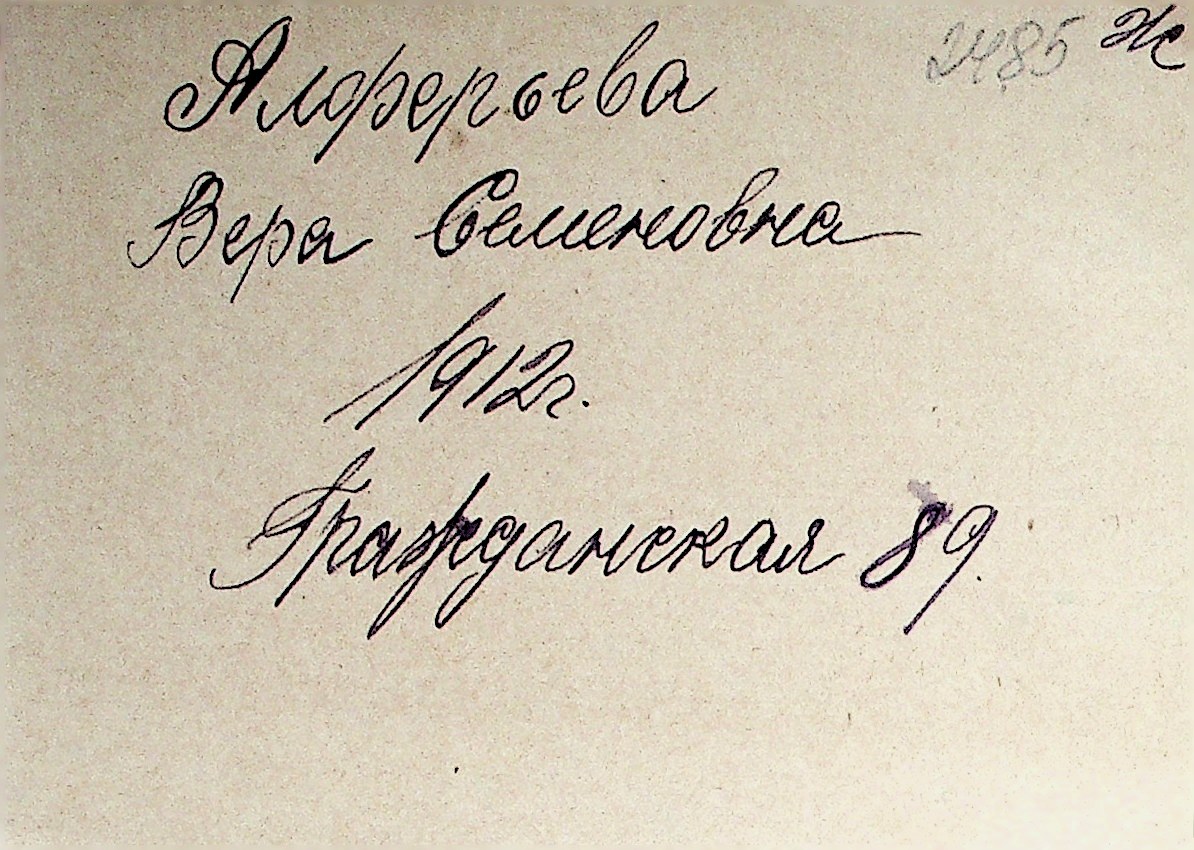 2485 Ж
Алферьева
Вера Семеновна
1912г.
Гражданская 89.